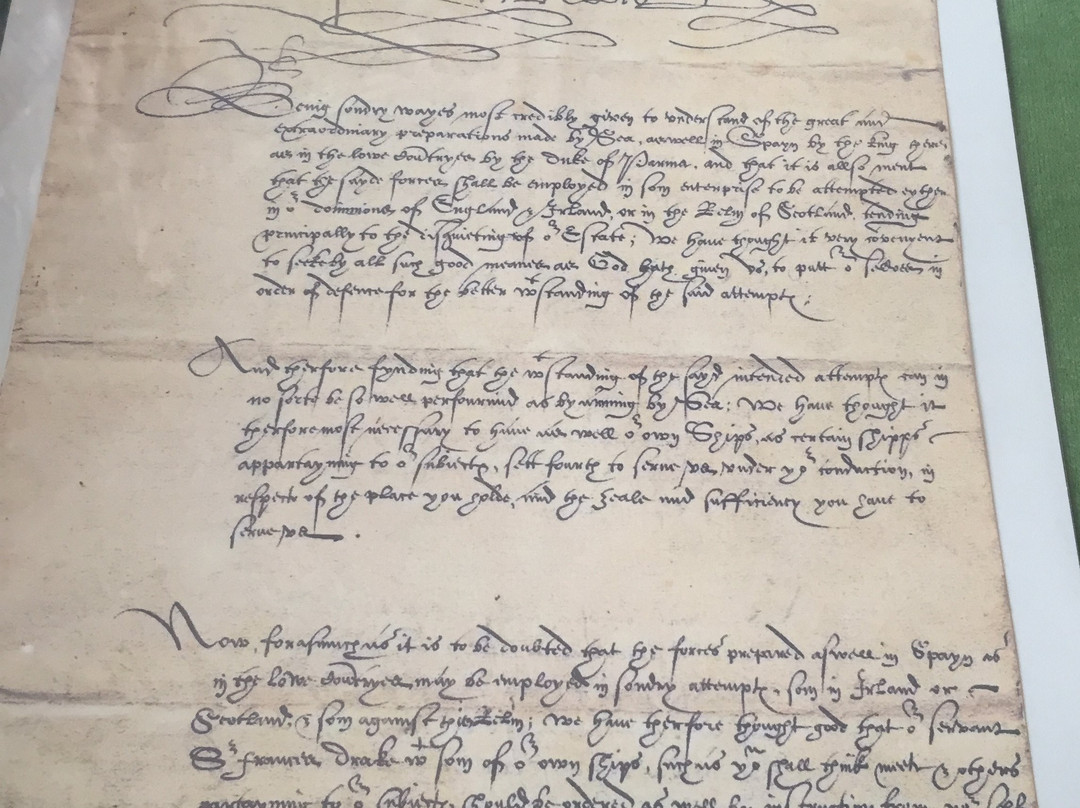 Being sondry wayes most credibly given to understand of the great and
extraordinary preparations made by Sea, aswell in Spayn by the king there
as in the lowe Countryes by the Duke of Parma, and that it is allso ment
that the sayde forces shall be employed in som enterprise to be attempted eyther
in oʳ dominions of England & Irland, or in the Relm of Scotland, tending
principally to the disquieting of oʳ Estate; We have thought it very convenient
to seeke by all such good meanes as God hath given us, to putt oʳ selves in
order of defence for the better wᵗstanding of the said attempts;
And therfore fynding that the wᵗstanding of the sayd intended attempts can in
no sorte be so well perfourmid as by arming by Sea; We have thought it
therfore most necessary to have as well oʳ own Ships, as certain shipps
appartayning to oʳ subiects, sett fourth to serve us under yoʳ conduction, in
respect of the place you holde, and the zeale and sufficiency you have to
serve us.
Now, forasmuch as it is to be doubted that the forces prepared aswell in Spayn as
in the lowe Countryes may be employed in sondry attempts, som in Irland or
Scotland, & som against this Relm; We have therfore thought good that oʳ servant
Sʳ Frances Drake wᵗ som of oʳ own ships, such as yoᵘ shall think meete & others
partayning to oʳ subiects should be ordered as well by instruction from